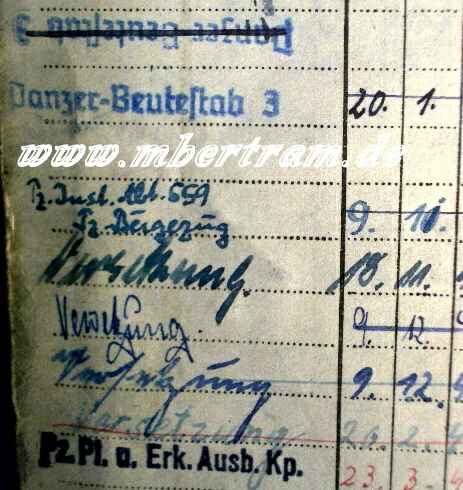 Panzer-Beutestab 3
Panzer-Beutestab 3 20. 1.
www.mbertram.de
Pz. Inst. Abt. 559
Pz. Bergezug 9. 10.
Versetzung. 18. 11.
Versetzung. 9. 12.
Versetzung 9. 12. 4
Versetzung 20. 2. 4
Pz. Pl. a. Erk. Ausb. Kp.
23. 3. 4